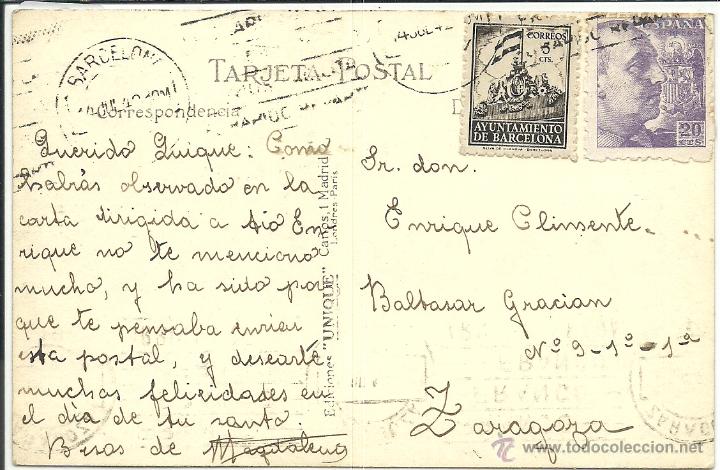 BARCELONA
TARJETA POSTAL
Correspondencia
D
CORREOS
5
CTS.
AYUNTAMIENTO
DE BARCELONA
ESPAÑA
CORREOS
20
CTS
Querido Quique: Como
habrás observado en la
carta dirigida a tío En
rique no te menciono
mucho, y ha sido por
que te pensaba enviar
esta postal, y desearte
muchas felicidades en
el día de tu santo.
Besos de Magdalena
Ediciones "UNIQUE" Caños, 1, Madrid
Londres-París
Sr. don.
Enrique Climente.
Baltasar Gracian
Nº 9-1º-1ª
Zaragoza
www.todocoleccion.net